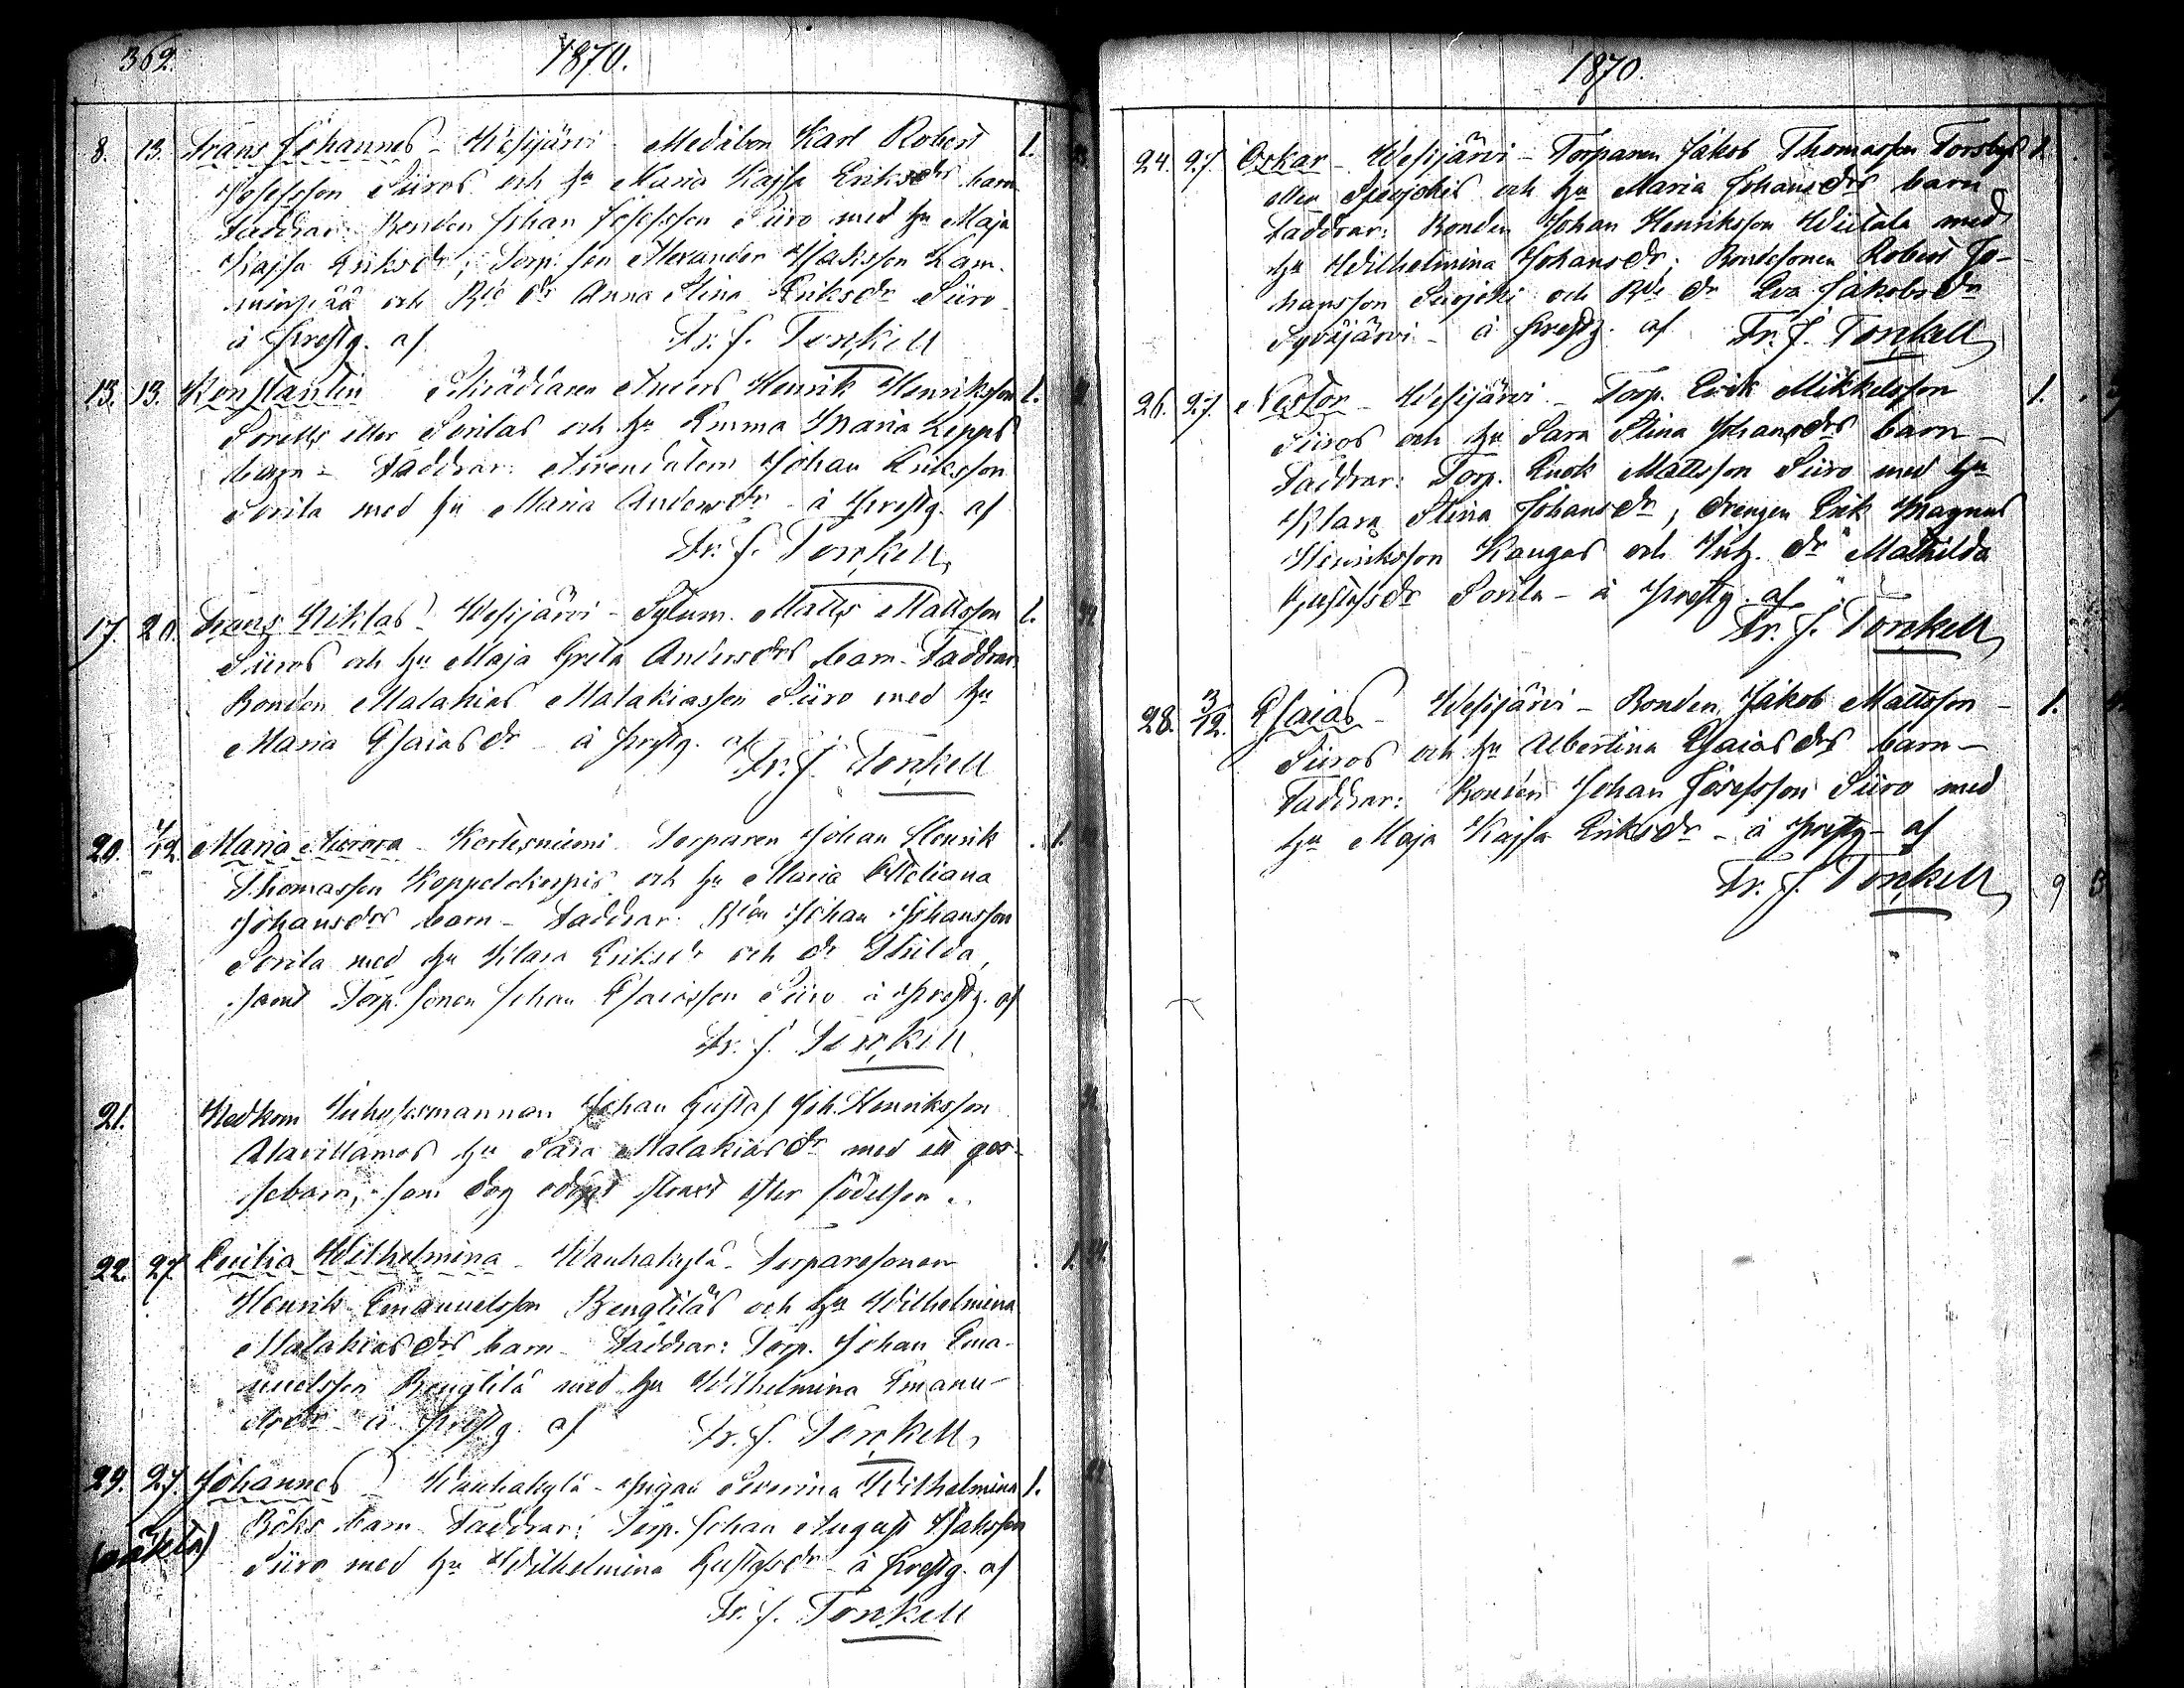 362.
1870.
8. 13. Frans Johannes - Wesijärvi - Medåbon Karl Robert 1.
Josefsson Siiros och hu Maria Kajsa Eriksdrs barn
Faddrar: Bonden Johan Josefsson Siiro med hu Maja
Kajsa Eriksdr; Torp. son Alexander Isaksson
och Bde dr Anna Stina Eriksdr Siiro
à prestg. af Fr. J. Tonkell
13. 13. Konstantin Skräddaren Anders Henrik Henriksson 1.
eller Sorilas och hu Emma Maria
barn - Faddrar: Arrendatorn Johan Eriksson
Sorila med hu Maria Andersdr - à prestg. af
Fr. J. Tonkell
17. 20. Frans Niklas - Wesijärvi - Sytum. Matts Mattsson 1.
Siiros och hu Maja Greta Andersdrs barn - Faddrar
Bonden Malakias Malakiasson Siiro med hu
Maria Esaiasdr à prestg. af
Fr. J. Tonkell
20. 4/12 Maria Aurora - Kortesniemi Torparen Johan Henrik 1.
Thomasson och hu Maria
Johansdrs barn - Faddrar: Bden Johan Johansson
Sorila med hu Klara Eriksdr och dr Hilda,
samt Torp. sonen Johan Esaiasson Siiro à prestg. af
Fr. J. Tonkell
21. Nedkom Inhysesmannen Johan Gustaf Joh. Henriksson
hu Sara Malakiasdr med ett gos-
sebarn, som dog odöpt straxt efter födelsen.
22. 27. Cecilia Wilhelmina - Wauhakylä - Torparesonen 1.
Henrik Emanuelsson Bengtiläs och hu Wilhelmina
Malakiasdrs barn - Faddrar: Torp. Johan Ema-
nuelsson Bengtilä med hu Wilhelmina Emanu-
elsdr à prestg. af Fr. J. Tonkell
29. 27. Johannes Wauhakylä - pigan Serafina Wilhelmina 1.
(oäkta) barn - Faddrar: Torp. Johan August Isaksson
Siiro med hu Wilhelmina Gustafsdr - à prestg. af
Fr. J. Tonkell
1870.
24. 27. Oskar - Wesijärvi - Torparen Jakob Thomasson Forsbys 1.
eller och hu Maria Johansdrs barn
Faddrar: Bonden Johan Henriksson Wiitala med
hu Wilhelmina Johansdr; Bondesonen Robert Jo-
hansson och Bde dr Eva Jakobsdr
Syväjärvi - à prestg. af Fr. J. Tonkell
26. 27. Nestor - Wesijärvi - Torp. Erik Mikkelsson 1.
Siiros och hu Sara Stina Johansdrs barn -
Faddrar: Torp. Enok Mattsson Siiro med hu
Klara Stina Johansdr, drengen Erik Magnus
Henriksson Kangas och Inh. dr Mathilda
Gustafsdr Sorila - à prestg. af
Fr. J. Tonkell
28. 3/12. Esaias - Wesijärvi - Bonden Jakob Mattsson - 1.
Siiros och hu Albertina Esaiasdrs barn -
Faddrar: Bonden Johan Josefsson Siiro med
hu Maja Kajsa Eriksdr - à prestg - af
Fr. J. Tonkell 9